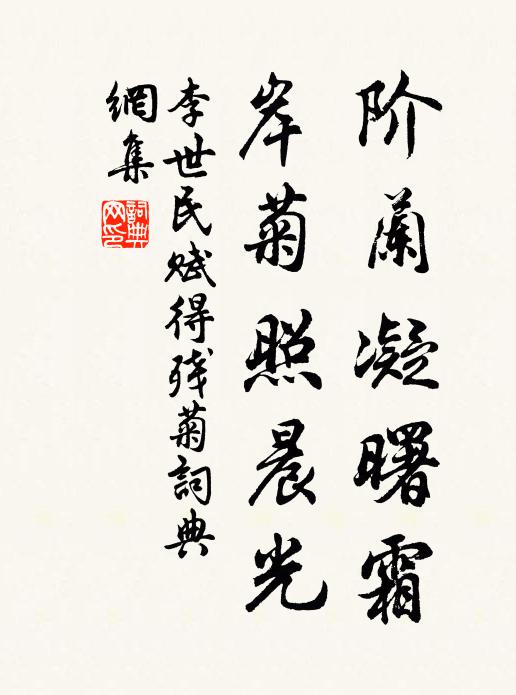 阶蘭凝曙霜
岸菊照晨光
李世民赋得残菊詞典
網集
詞典
网印